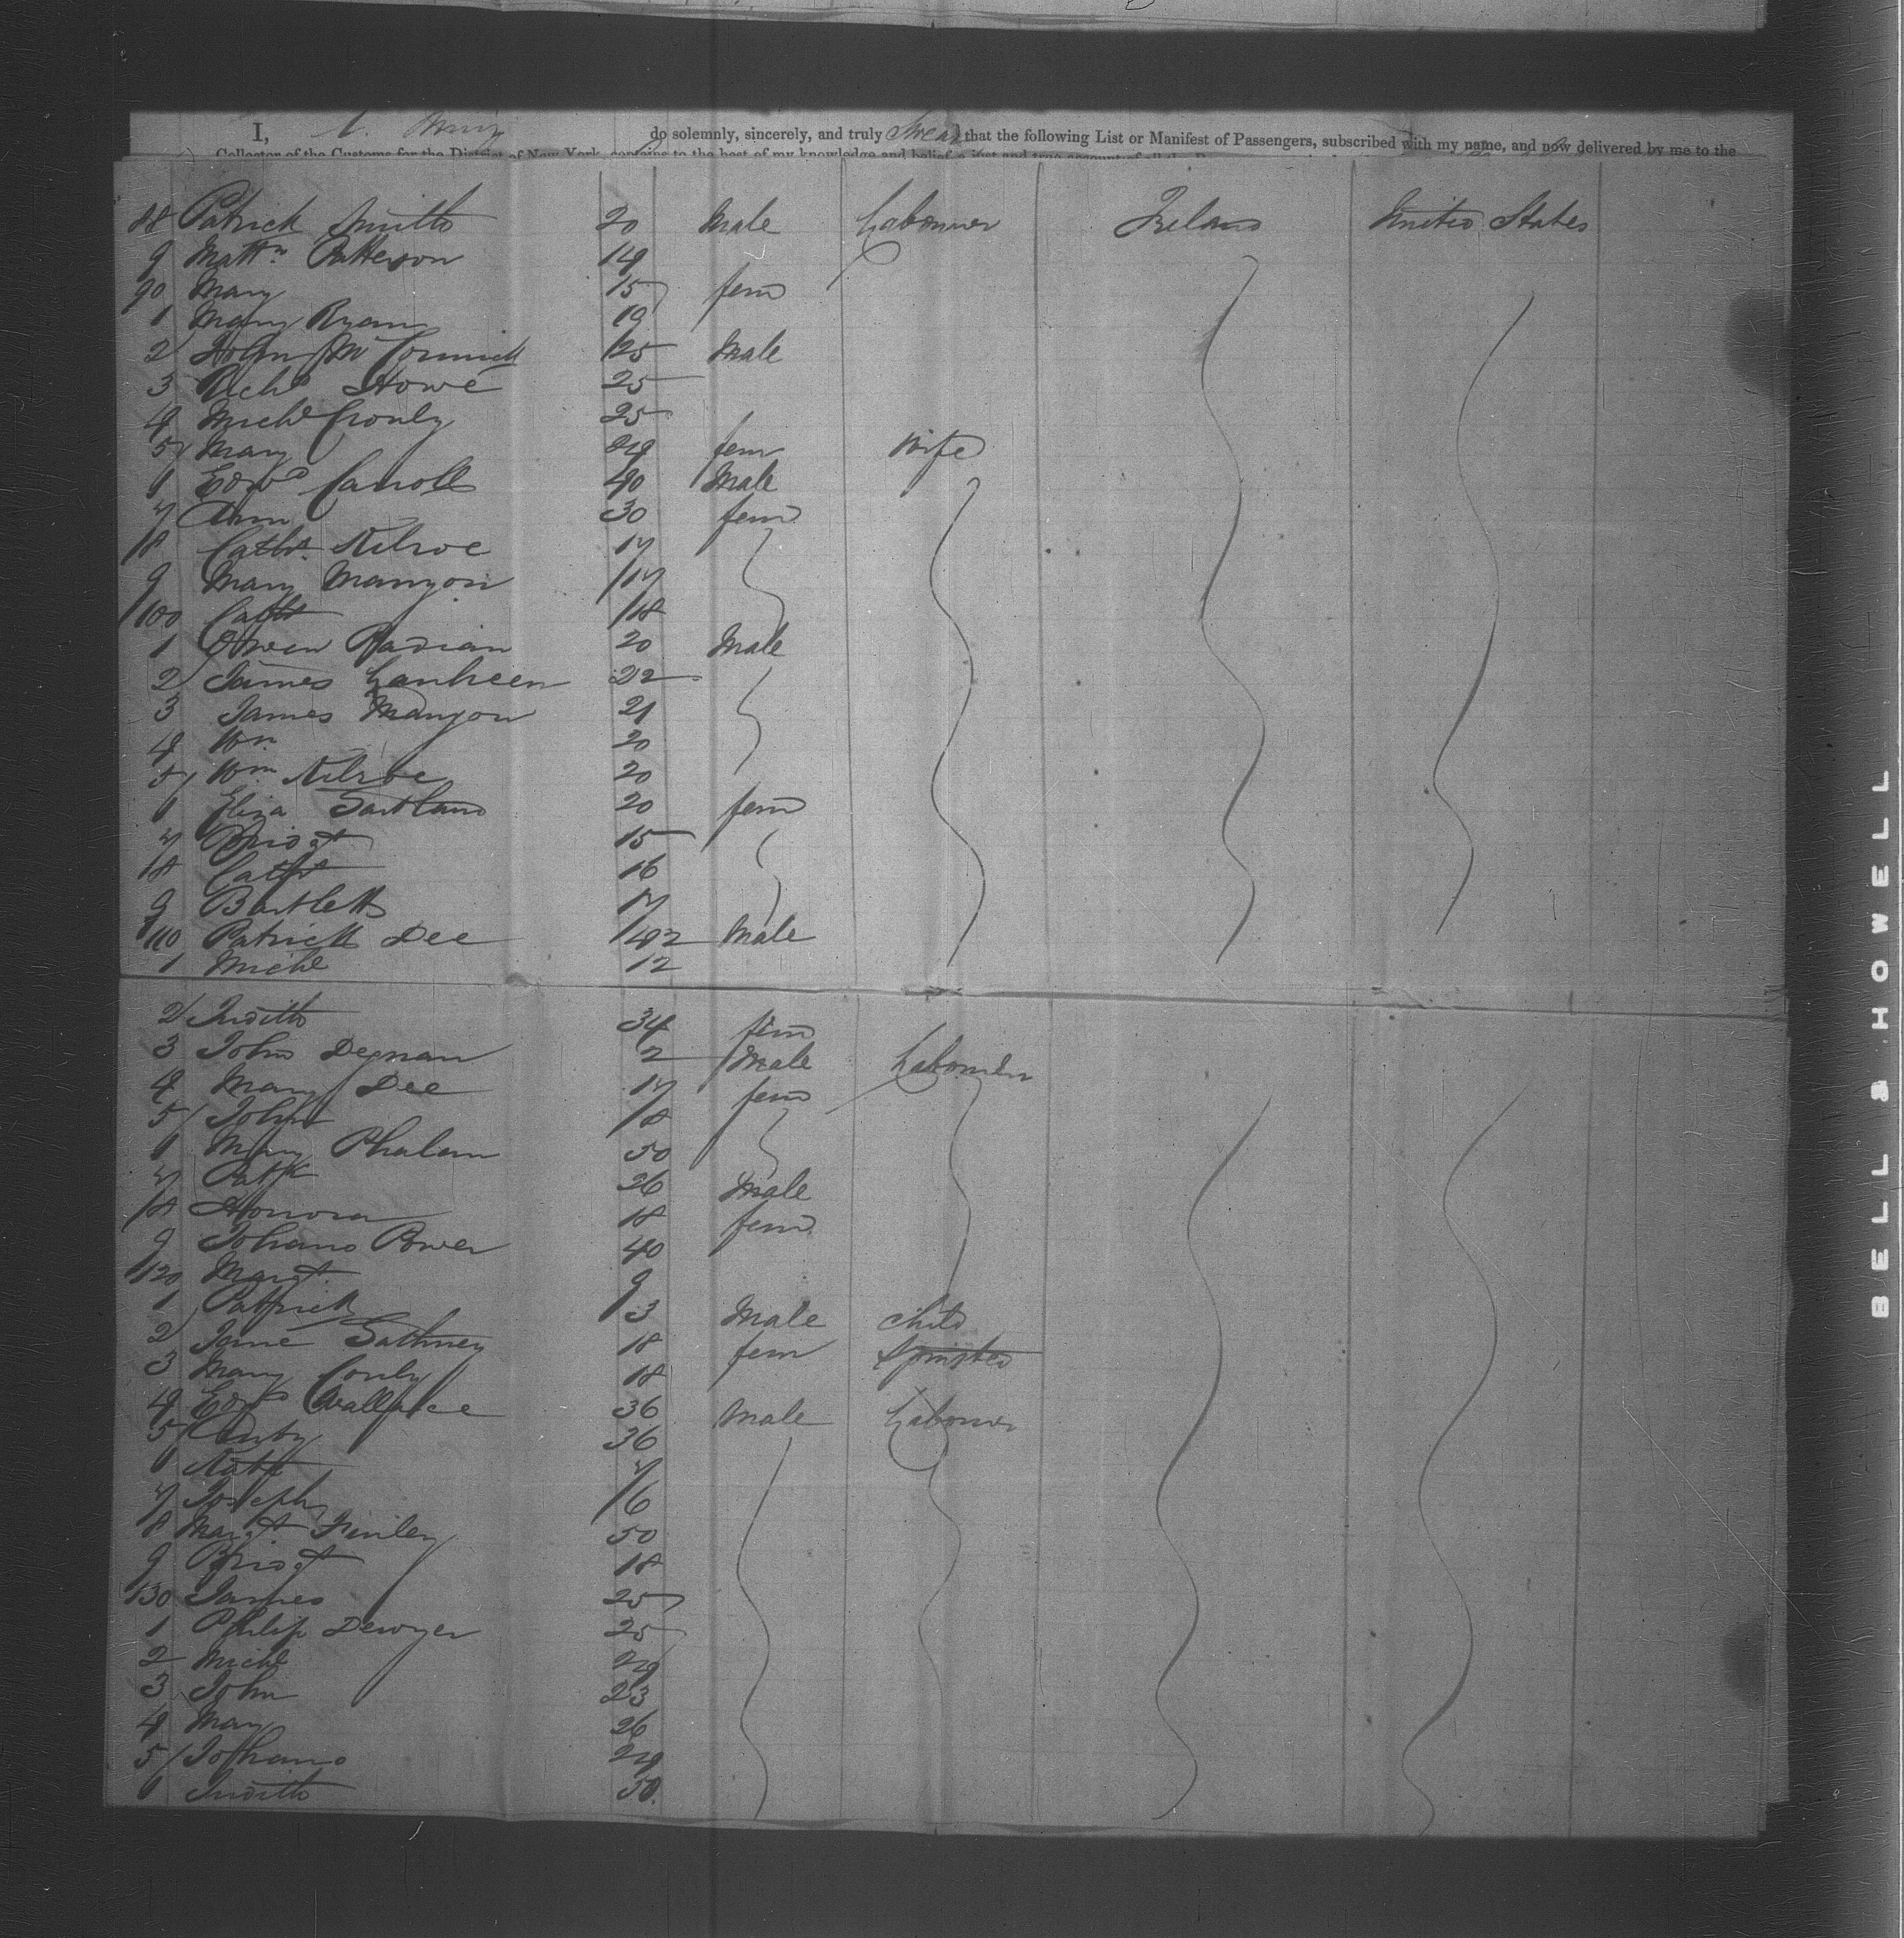 I, do solemnly, sincerely, and truly swear that the following List or Manifest of Passengers, subscribed with my name, and now delivered by me to the
Collector of the Customs for the District of New York, contains to the best of my knowledge and belief a just and true account of all the
88 Patrick Smith 20 Male Labourer Ireland United States
9 Matt.n Patterson 19
90 Mary 15 fem
1 Mary Ryan 19
2 John McCormick 25 Male
3 Richd Howe 25
4 Michl Cronly 25
5 Mary 24 fem Wife
6 Edwd Carroll 40 Male
7 Ann 30 fem
8 Cathe Kilroe 17
9 Mary Manyon 17
100 Cathe 18
1 Owen Radian 20 Male
2 James Lanheen 22
3 James Manyon 21
4 Wm 20
5 Wm Kilroe 20
6 Eliza Gartland 20 fem
7 Bridgt 15
8 Cathe 16
9 Bartlett 17
110 Patrick Dee 42 Male
1 Michl 12
2 Judith 34 fem
3 John Degnan 2 Male Labourer
4 Mary Dee 17 fem
5 John 8
6 Mary Phalan 50
7 Patk 26 Male
8 Honora 18 fem
9 Johana Power 40
120 Margt 9
1 Patrick 3 Male Child
2 Jane 18 fem Spinster
3 Mary Conly 18
4 Edwd Wallace 36 Male Labourer
5 36
6 7
7 Joseph 6
8 Margt Finley 50
9 Bridgt 18
130 James 25
1 Philip Dewyer 25
2 Michl 24
3 John 23
4 Mary 26
5 Johana 24
6 Judith 50
BELL & HOWELL